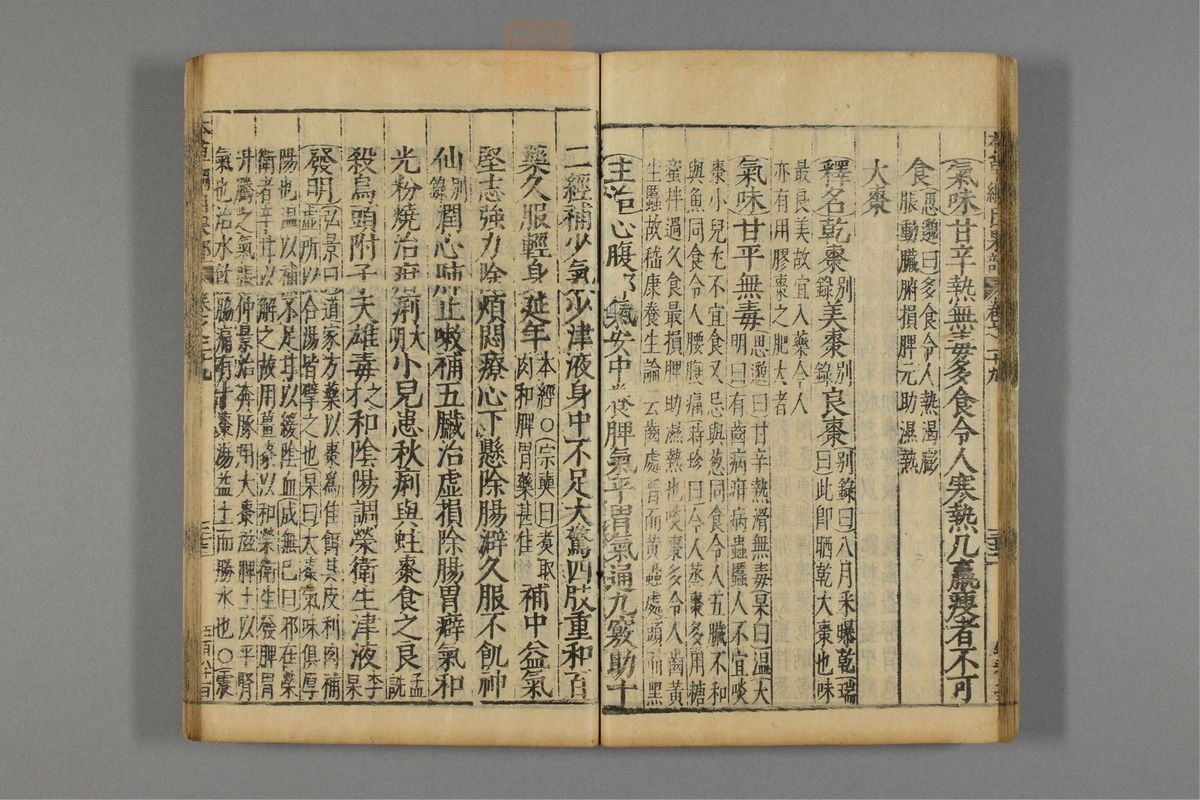 氣味甘辛熱無毒多食令人寒熱凡羸瘦者不可
食思邈曰多食令人熱渴膨
脹動臟腑損脾元助濕熱
大棗
釋名乾棗別錄美棗別錄良棗別錄曰八月采曝乾瑞
曰此即晒乾大棗也味
最良美故宜入藥今人
亦有用膠棗之肥大者
氣味甘平無毒思邈曰甘辛熱滑無毒杲曰溫大
明曰有齒病疳病蟲䘌人不宜啖
棗小兒尤不宜食又忌與葱同食令人五臟不和
與魚同食令人腰腹痛時珍曰今人蒸棗多用糖
蜜拌過久食最損脾助濕熱也啖棗多令人齒黃
生䘌故嵇康養生論云齒處晉而黃蝨處頭而黑
主治心腹邪氣安中養脾氣平胃氣通九竅助十
二經補少氣少津液身中不足大驚四肢重和百
藥久服輕身延年本經〇宗奭曰煮取
肉和脾胃藥甚佳補中益氣
堅志強力除煩悶療心下懸除腸澼久服不飢神
仙別錄潤心肺止嗽補五臟治虛損除腸胃癖氣和
光粉燒治疳痢大明小兒患秋痢與蛀棗食之良孟詵
殺烏頭附子天雄毒之才和陰陽調榮衛生津液李杲
發明弘景曰道家方藥以棗為佳餌其皮利肉補
虛所以合湯皆擘之也杲曰大棗氣味俱厚
陽也溫以補不足甘以緩陰血成無已曰邪在榮
衛者辛甘以解之故用薑棗以和榮衛生發脾胃
升騰之氣張仲景治奔豚用大棗滋脾土以平腎
氣也治水飲脇痛有十棗湯益土而勝水也〇震